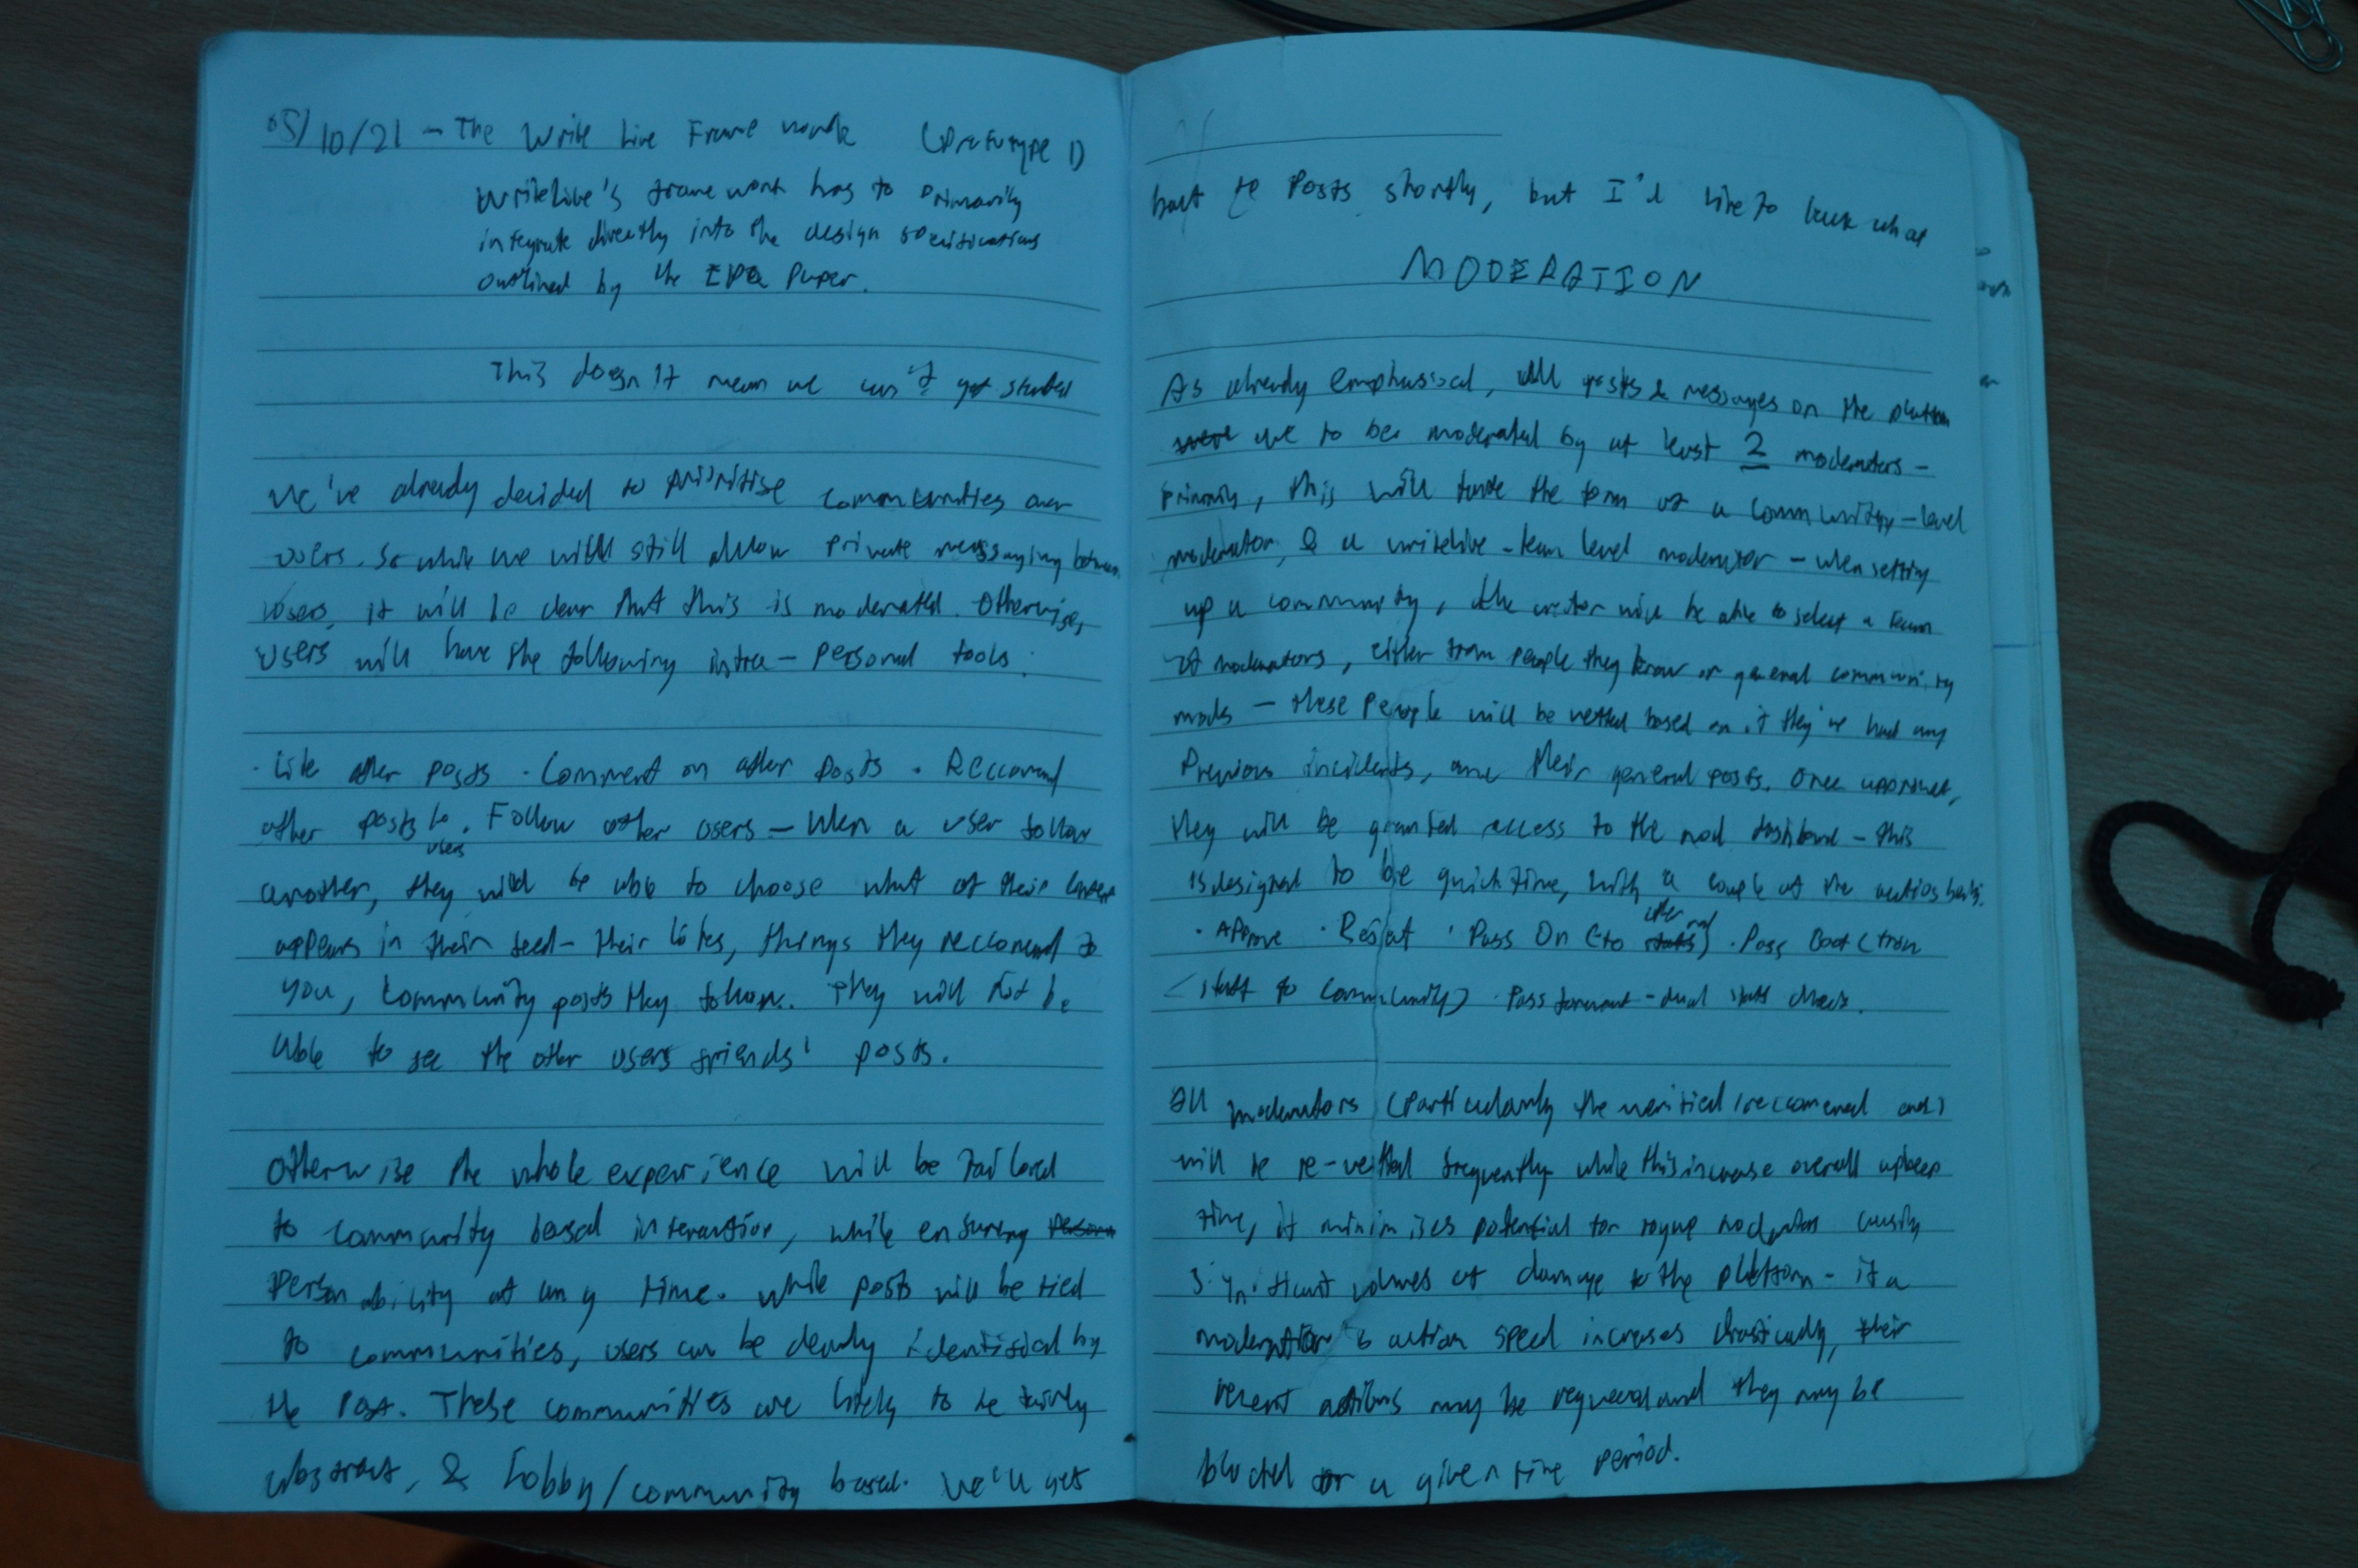 05/10/21 - The Write Live Frame work (Prototype 1)
WriteLive's frame work has to primarily
integrate directly into the design specifications
outlined by the EPQ Paper.
This doesn't mean we can't get started
We've already decided to prioritise communities over
users. So while we will still allow private messaging between
users, it will be clear that this is moderated. Otherwise,
users will have the following intra-personal tools:
· Like other posts · Comment on other posts · Reccomend
other posts to users · Follow other users - When a user follow
another, they will be able to choose what of their
appears in their feed - their likes, things they reccomend to
you, community posts they follow. They will not be
able to see the other users friends' posts.
Otherwise the whole experience will be tailored
to community based interaction, while ensuring
Personability at any time. While posts will be tied
to communities, users can be clearly identified by
the Post. These communities are likely to be fairly
abstract, & hobby/community based. We'll get
back to Posts shortly, but I'd like to talk what
MODERATION
As already emphasised, all posts & messages on the platform
are to be moderated by at least 2 moderators -
primarily, this will take the form of a community-level
moderator, & a writelive-team level moderator - when setting
up a community, the creator will be able to select a team
of moderators, either from people they know or general community
mods - these people will be vetted based on if they've had any
Previous incidents, and their general posts. Once approved,
they will be granted access to the mod dashboard - this
is designed to be quick time, with a couple of the actions being:
· Approve · Reject · Pass On (to internal) · Pass Back (from
staff to community) · Pass forward - dual staff check.
All moderators (particularly the verified/reccomened ones)
will be re-vetted frequently while this increase overall upkeep
time, it minimises potential for rogue moderators causing
significant volumes of damage to the platform - if a
moderator's action speed increases drastically, their
recent actions may be reviewed and they may be
blocked for a given time period.